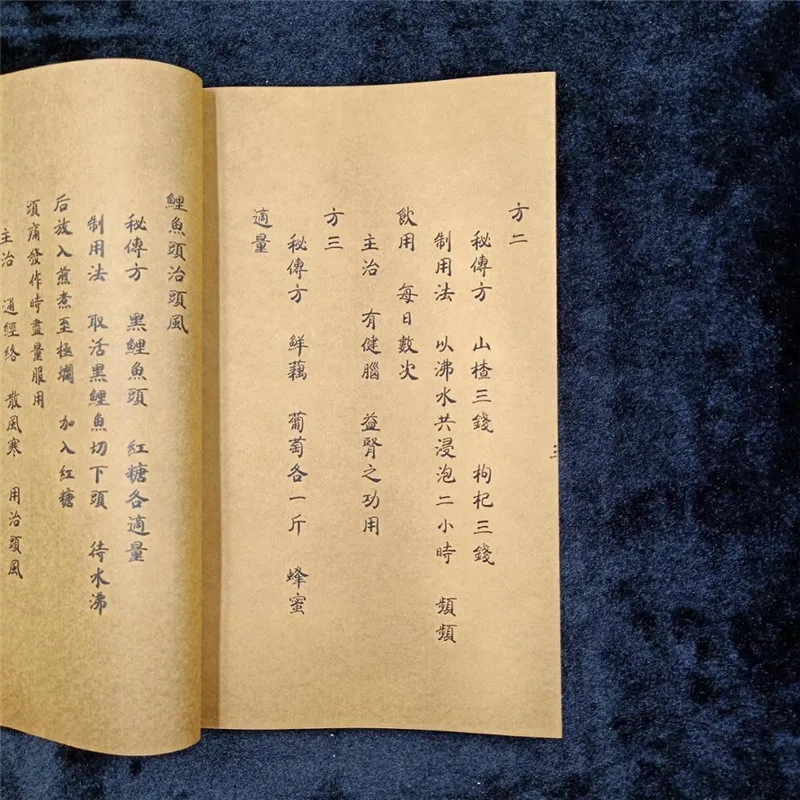 方二
秘傳方 山楂三錢 枸杞三錢
制用法 以沸水共浸泡二小時 頻頻
飲用 每日數次
主治 有健腦 益腎之功用
方三
秘傳方 鮮藕 葡萄各一斤 蜂蜜
適量
鯉魚頭治頭風
秘傳方 黑鯉魚頭 紅糖各適量
制用法 取活黑鯉魚切下頭 待水沸
后放入煎煮至極爛 加入紅糖
頭痛發作時盡量服用
主治 通經絡 散風寒 用治頭風